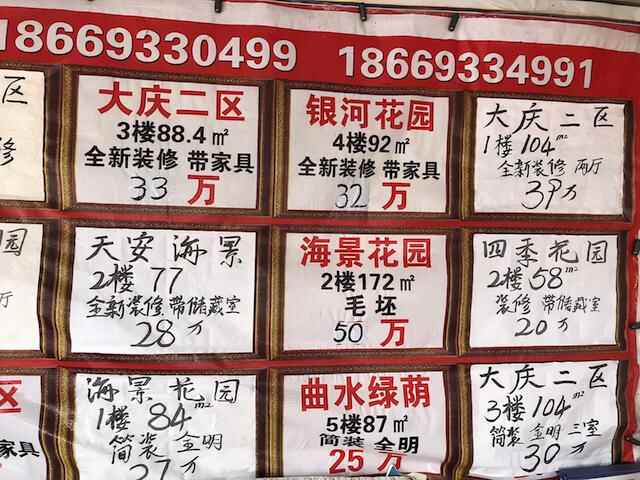 18669330499 18669334991
区
修
大庆二区
3楼88.4㎡
全新装修 带家具
33万
银河花园
4楼92㎡
全新装修 带家具
32万
大庆二区
1楼104m²
全新装修 两厅
39万
园
厅
天安海景
2楼77
全新装修 带储藏室
28万
海景花园
2楼172㎡
毛坯
50万
四季花园
2楼58m²
装修 带储藏室
20万
区
家具
海景花园
1楼84m²
简装 全明
27万
曲水绿荫
5楼87㎡
简装 全明
25万
大庆二区
3楼104m²
简装 全明 三室
30万